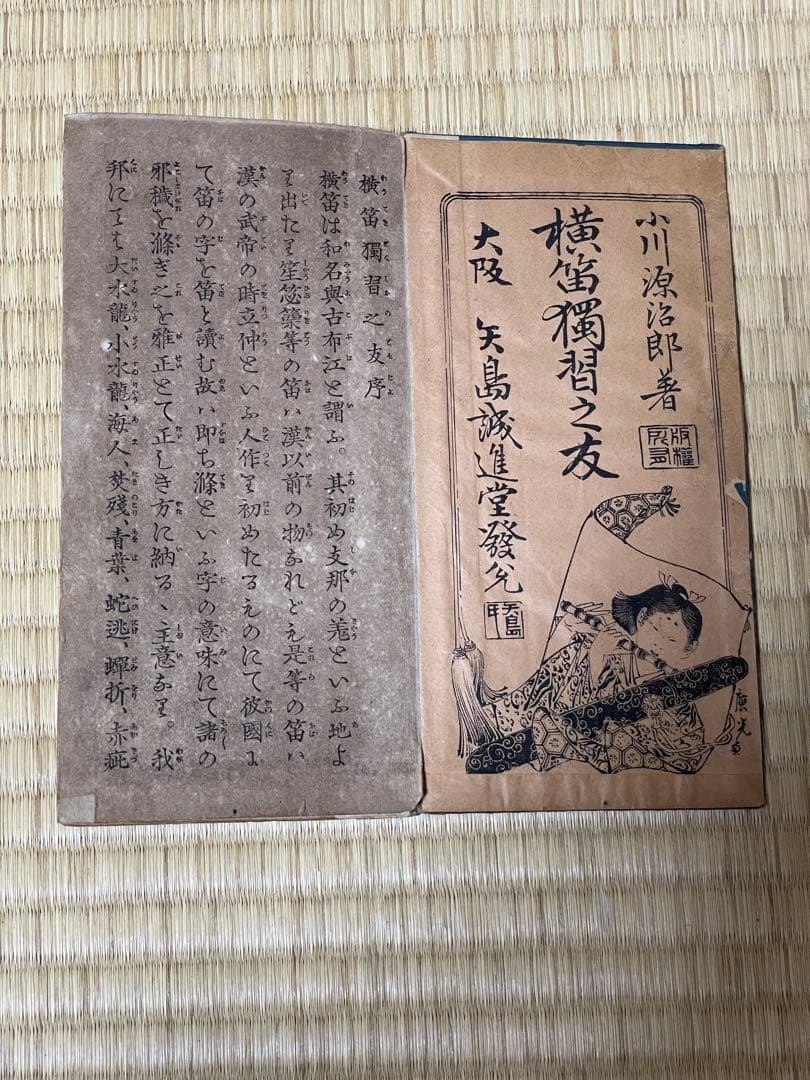 小川源治郎著
版權所有
横笛獨習之友
大阪 矢島誠進堂發兌
矢島
廣光画
横笛獨習之友序
横笛は和名與古布江と謂ふ。其初め支那の羗といふ地よ
り出たり笙箜篥等の笛ハ漢以前の物なれども是等の笛ハ
漢の武帝の時立仲といふ人作り初めたるものにて彼國に
て笛の字を笛と讀む故ハ即ち滌といふ字の意味にて諸の
邪穢を滌ぎ之を雅正とて正しき方に納るゝ主意なり。我
邦にても大水龍、小水龍、海人、焚殘、青葉、蛇逃、蟬折、赤疵